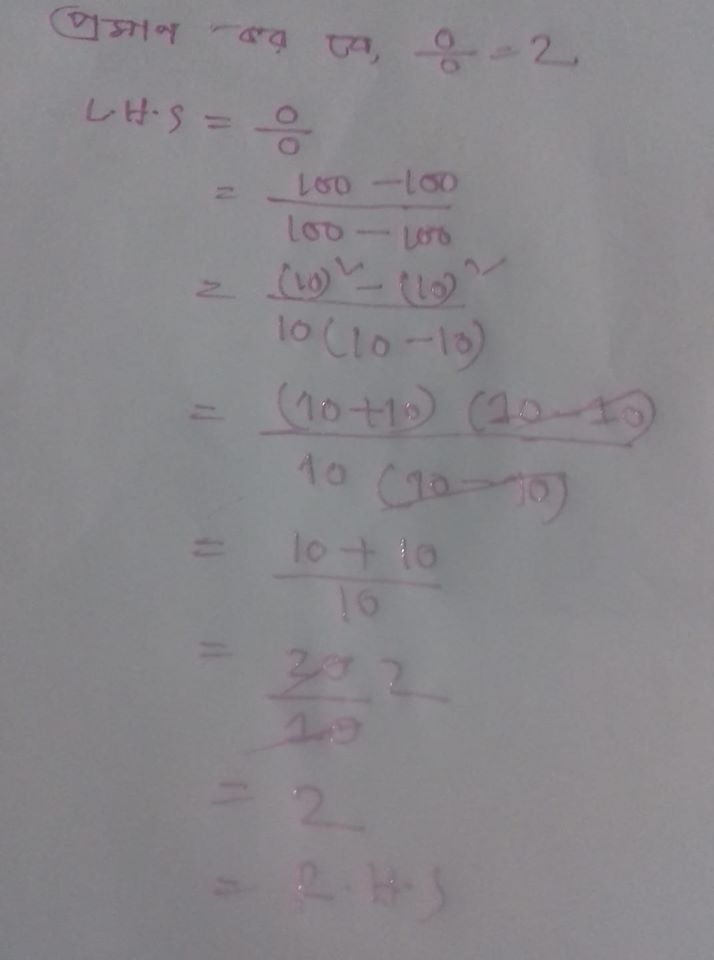 প্রমাণ কর যে, 0/0 = 2
L.H.S = 0/0
= 100 - 100 / 100 - 100
= (10)² - (10)² / 10(10 - 10)
= (10+10) (10-10) / 10 (10-10)
= 10 + 10 / 10
= 20 / 10 2
= 2
= R.H.S